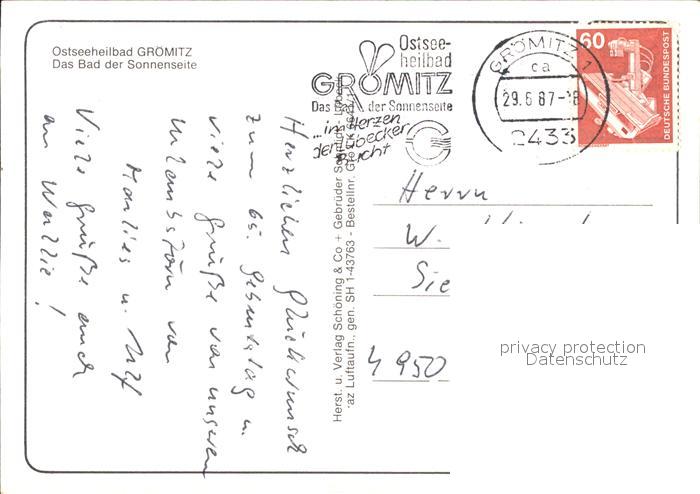 Ostseeheilbad GRÖMITZ
Das Bad der Sonnenseite
Ostsee-
heilbad
GRÖMITZ
Das Bad der Sonnenseite
...im Herzen
der Lübecker
Bucht
GRÖMITZ 1
ca
29.6.87-18
2433
60
DEUTSCHE BUNDESPOST
Herzlichen Glückwunsch
zum 65. Geburtstag u.
viele Grüße von unserem
Urlaubsstörn von
Marlies u. Ulf
Viele Grüße auch
an Wallie!
Herst. u. Verlag Schöning & Co + Gebrüder
az Luftaufn., gen. SH 1-43763 - Bestellnr.
Herrn
W.
Sie
4950
privacy protection
Datenschutz